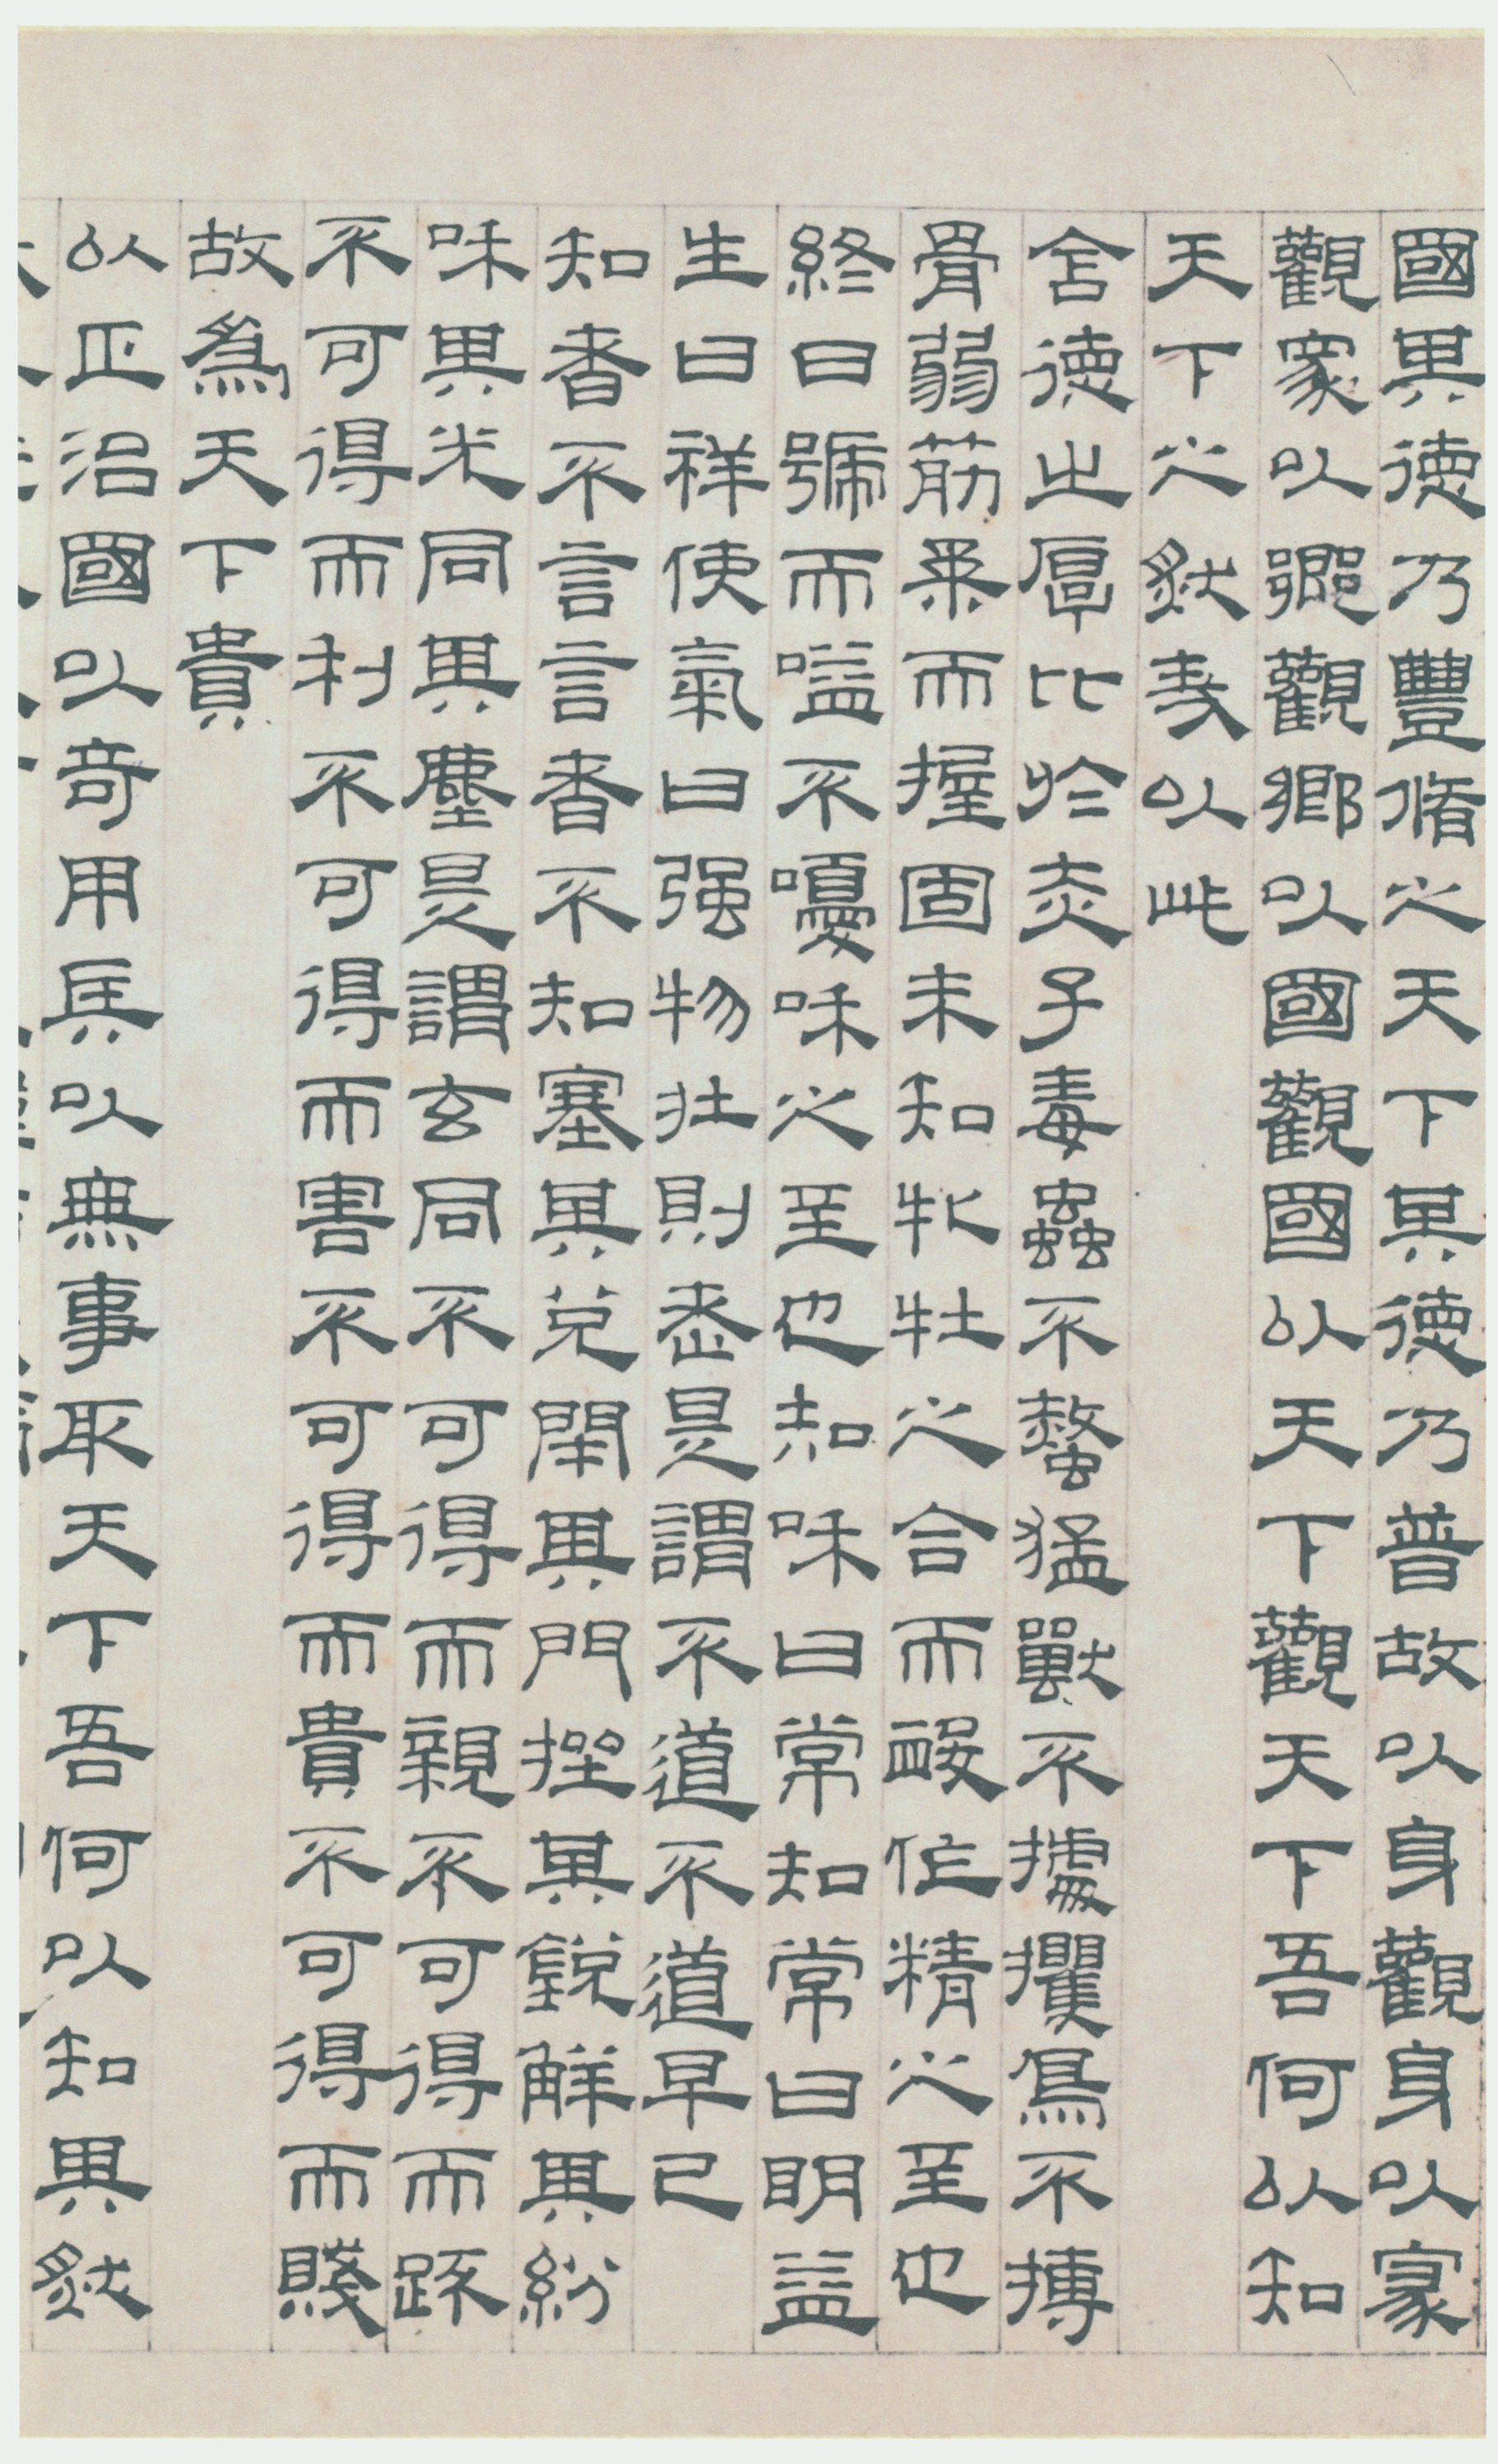 國其德乃豐脩之天下其德乃普故以身觀身以家
觀家以鄉觀鄉以國觀國以天下觀天下吾何以知
天下之然哉以此
含德之厚比於赤子毒蟲不螫猛獸不據攫鳥不搏
骨弱筋柔而握固未知牝牡之合而䘒作精之至也
終日號而嗌不嚘和之至也知和曰常知常曰明益
生曰祥使氣曰强物壯則老是謂不道不道早已
知者不言言者不知塞其兌閉其門挫其銳解其紛
和其光同其塵是謂玄同不可得而親不可得而踈
不可得而利不可得而害不可得而貴不可得而賤
故為天下貴
以正治國以奇用兵以無事取天下吾何以知其然